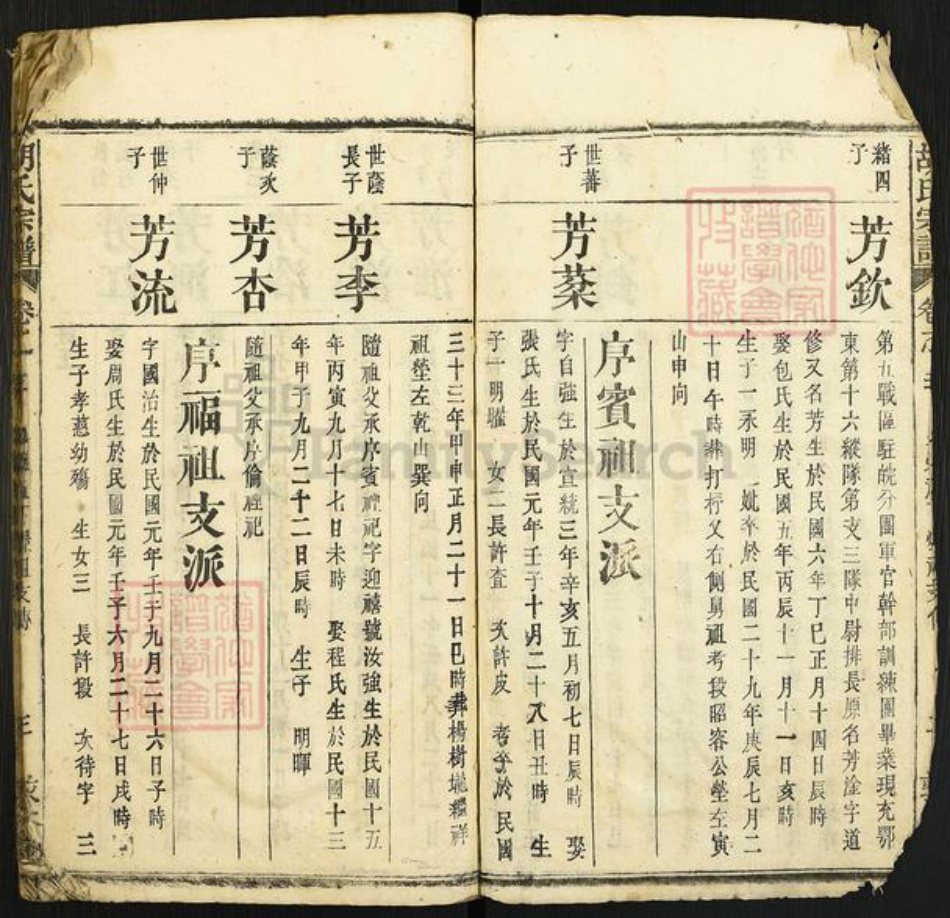 胡氏宗譜
緒四子
芳欽
第五戰區駐皖分團軍官幹部訓練團畢業現充鄂
東第十六縱隊第支三隊中尉排長原名芳淦字道
修又名芳生於民國六年丁巳正月十四日辰時
娶包氏生於民國五年丙辰十一月十一日亥時
生子一永明 妣卒於民國二十九年庚辰七月二
十日午時葬打 又右側與祖考段昭容公塋左寅
山申向
序賓祖支派
世蕃子
芳棻
字自強生於宣統三年辛亥五月初七日辰時 娶
張氏生於民國元年壬子十月二十八日丑時 生
子一明 女二長許查 次許皮 考卒於民國
三十三年甲申正月二十一日巳時葬楊樹 祥
祖塋左乾山巽向
世蔭長子
芳李
隨祖父承序賓祖祀字迎禧號汝強生於民國十五
年丙寅九月十七日未時 娶程氏生於民國十三
年甲子九月二十二日辰時 生子 明暉
蔭次子
芳杏
隨祖父承序倫祖祀
序福祖支派
世仲子
芳流
字國治生於民國元年壬子九月二十六日子時
娶周氏生於民國元年壬子六月二十七日戌時
生子孝慈幼殤 生女三 長許段 次待字 三
胡氏宗譜
卷
FamilySearch